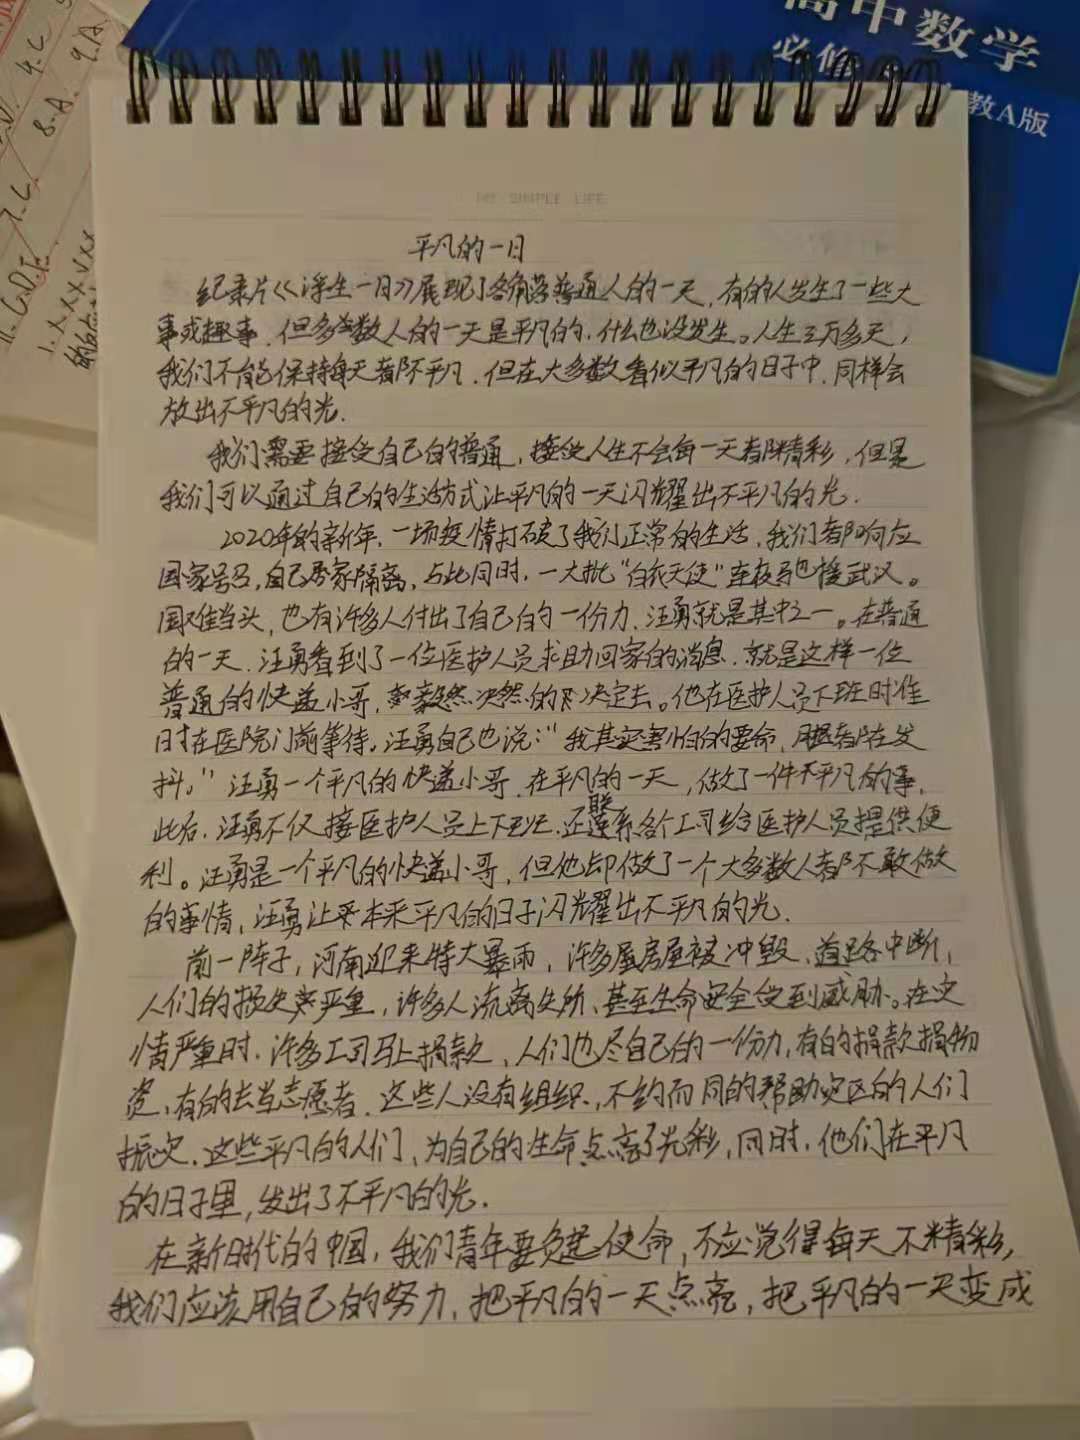 高中数学
必修
教A版
9.C
8.A. 9.A.
7.C.
11. C.D.E.
1.xxx√xx
MY SIMPLE LIFE
平凡的一日
纪录片《浮生一日》展现了各角落普通人的一天,有的人发生了一些大
事或趣事,但多数人的一天是平凡的,什么也没发生。人生三万多天,
我们不能保持每天都不平凡,但在大多数看似平凡的日子中,同样会
放出不平凡的光.
我们需要接受自己的普通,接受人生不会每一天都精彩,但是
我们可以通过自己的生活方式让平凡的一天闪耀出不平凡的光.
2020年的新年,一场疫情打破了我们正常的生活,我们都响应
国家号召,自己居家隔离,与此同时,一大批“白衣天使”连夜驰援武汉。
国难当头,也有许多人付出了自己的一份力,汪勇就是其中之一。在普通
的一天,汪勇看到了一位医护人员求助回家的消息,就是这样一位
普通的快递小哥,毅然决然的下决定去。他在医护人员下班时准
时在医院门前等待。汪勇自己也说:“我其实害怕的要命,腿都在发
抖。”汪勇一个平凡的快递小哥,在平凡的一天,做了一件不平凡的事,
此后,汪勇不仅接医护人员上下班,还联系各个公司给医护人员提供便
利。汪勇是一个平凡的快递小哥,但他却做了一个大多数人都不敢做
的事情,汪勇让本来平凡的日子闪耀出不平凡的光.
前一阵子,河南迎来特大暴雨,许多房屋被冲毁,道路中断,
人们的损失严重,许多人流离失所,甚至生命安全受到威胁。在灾
情严重时,许多公司马上捐款,人们也尽自己的一份力,有的捐款捐物
资,有的去当志愿者,这些人没有组织,不约而同的帮助灾区的人们
振灾,这些平凡的人们,为自己的生命点亮了光彩,同时,他们在平凡
的日子里,发出了不平凡的光.
在新时代的中国,我们青年要负起使命,不应觉得每天不精彩,
我们应该用自己的努力,把平凡的一天点亮,把平凡的一天变成